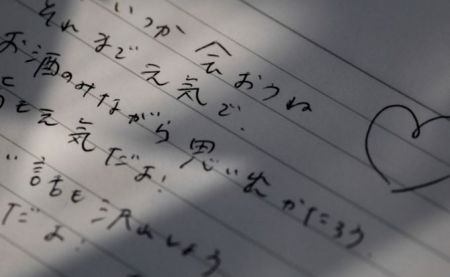 いつか会おうね
それまで元気で.
お酒のみながら思い出かたろう.
も元気だよ!
話も沢山しよう
だよ!